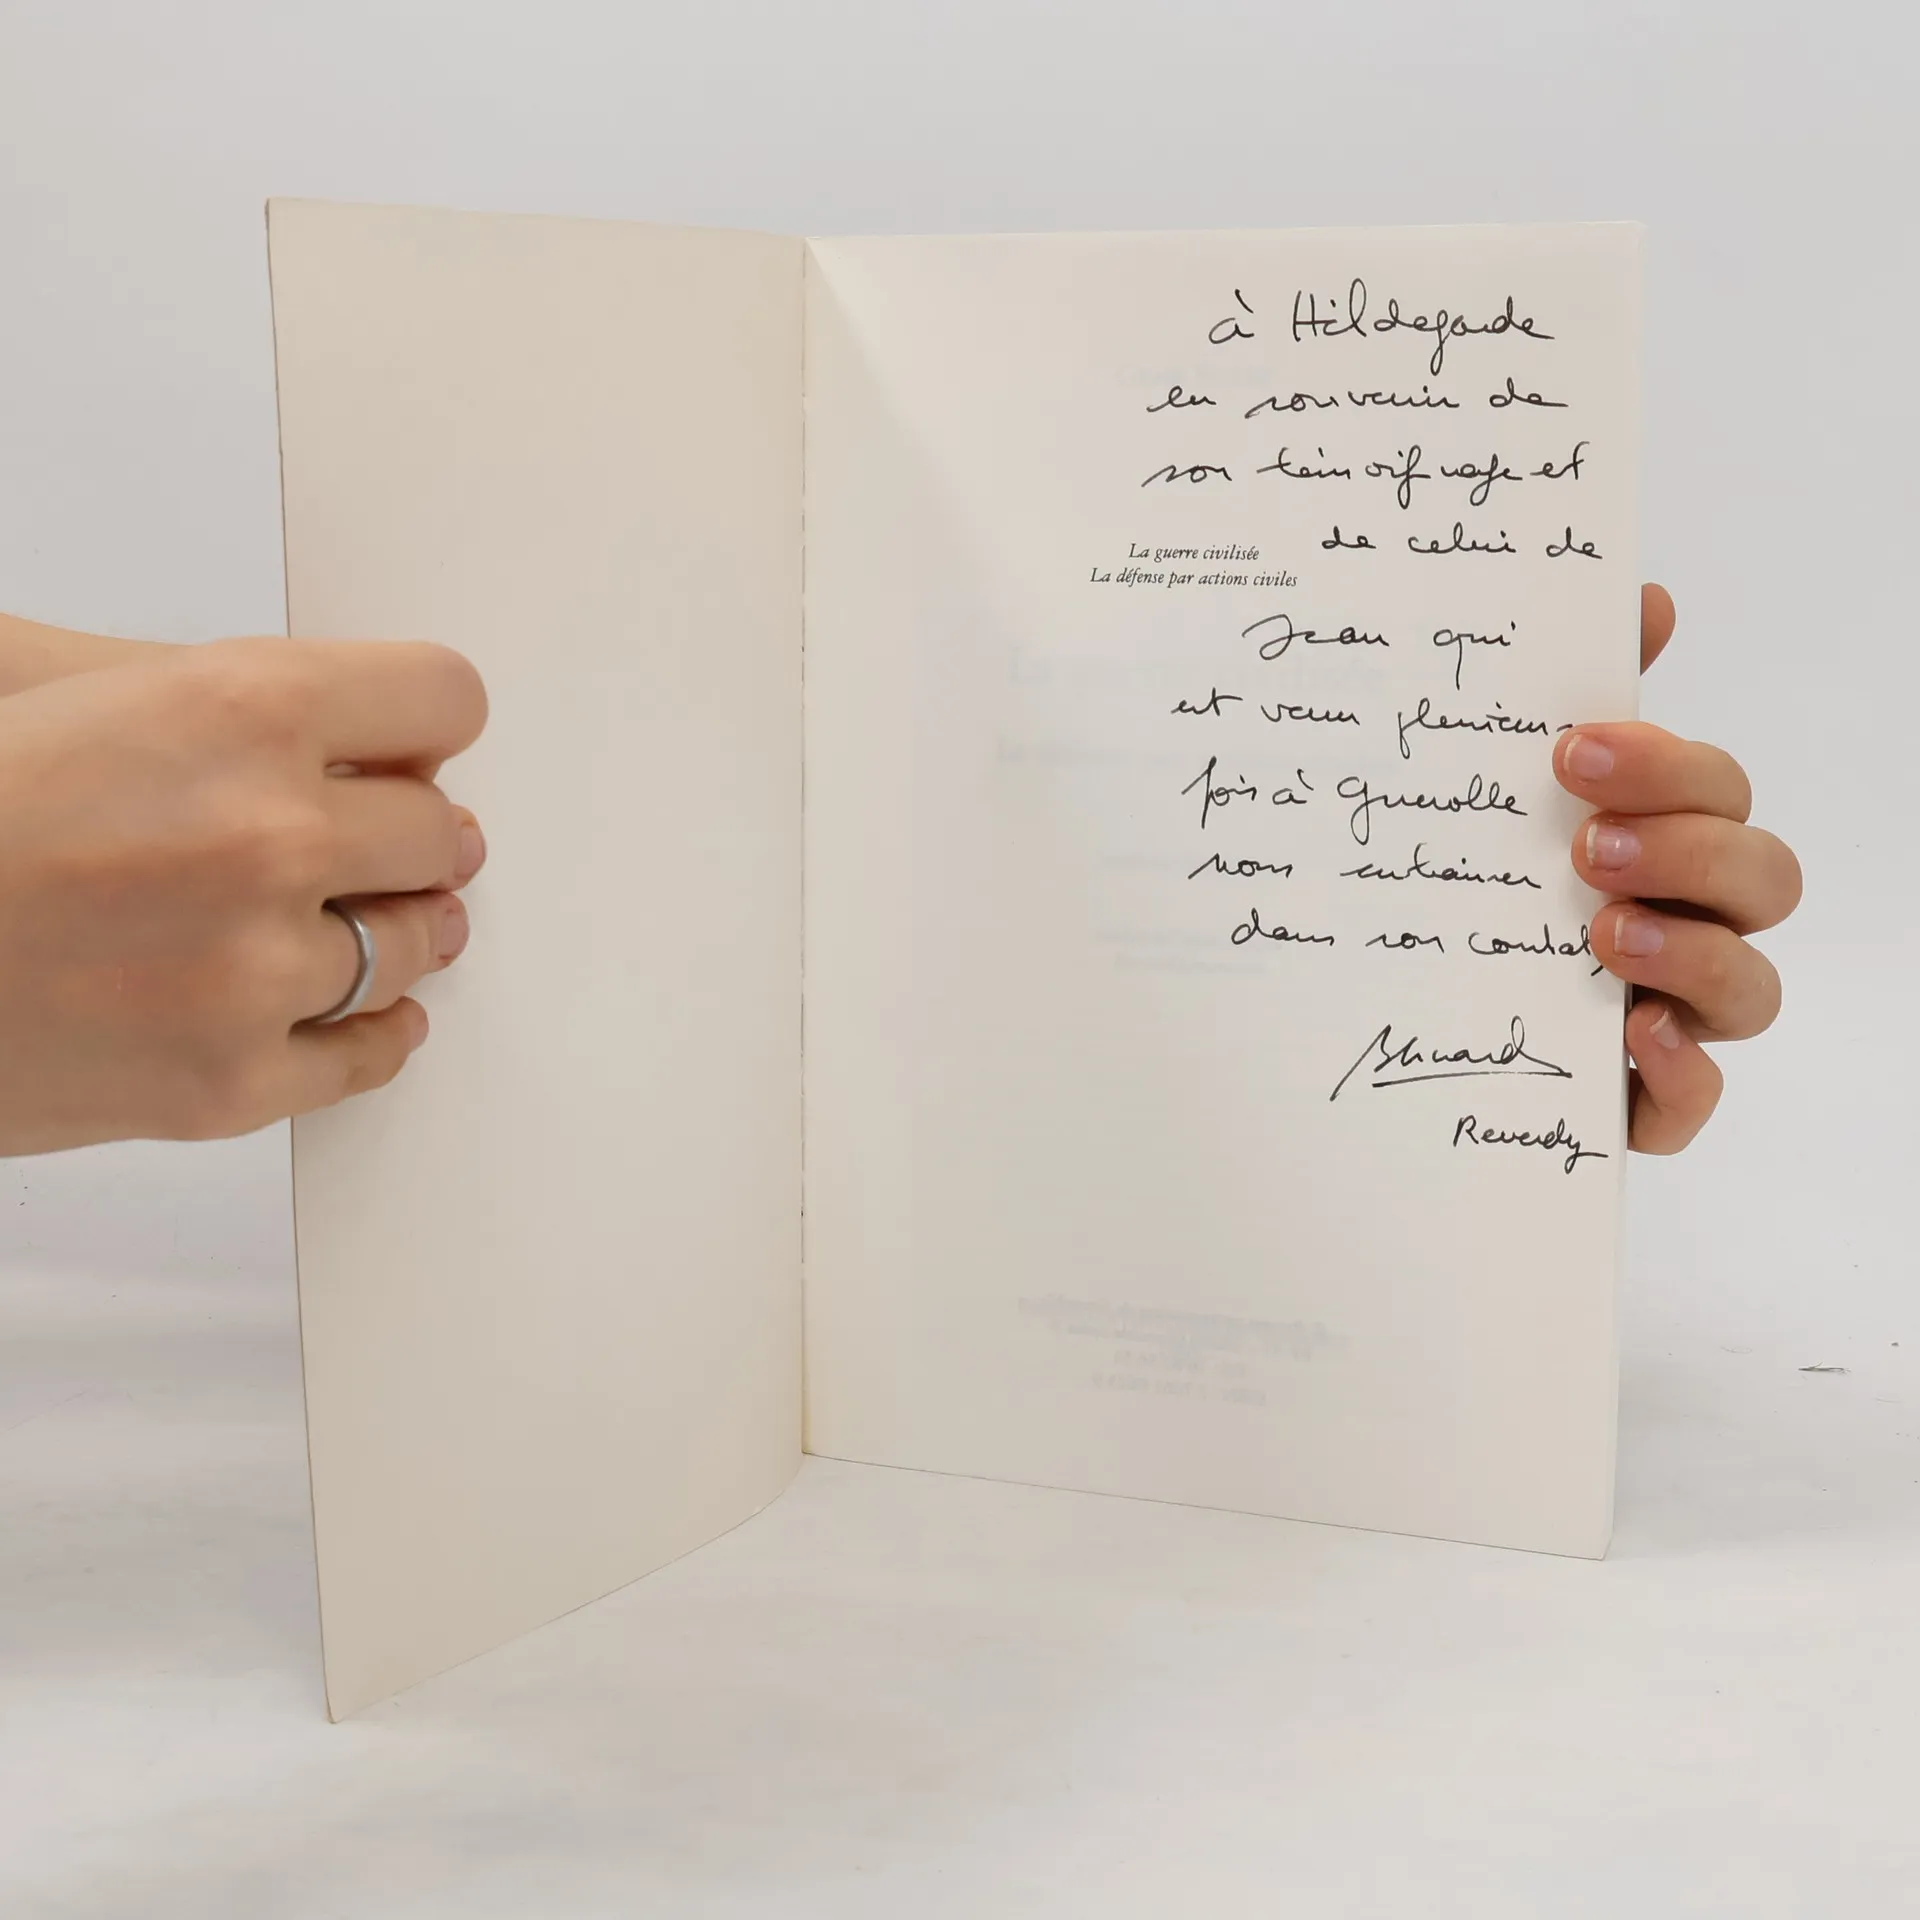 à Hildegarde
en souvenir de
son témoignage et
de celui de
La guerre civilisée
La défense par actions civiles
Jean qui
est venu plusieurs
fois à
nous entraîner
dans son combat,
Bernard
Reverdy